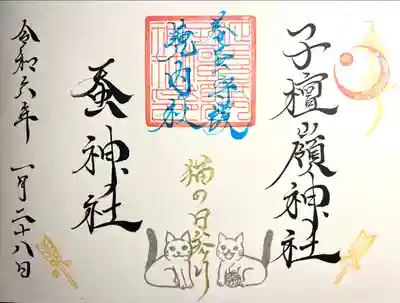 子檀嶺神社
養蚕守護
境内社
猫の日参り
蚕神社
令和六年 一月二十八日